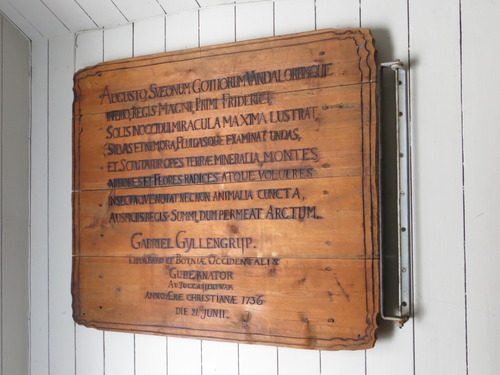 AUGUSTO, SVEONUM GOTHORUM, VANDALORUMQUE
REGIS MAGNI, PRIMI FRIDERICI,
SOLIS INOCCIDUI MIRACULA MAXIMA LUSTRAT,
SYLVAS ET NEMORA, FLUIDASQUE EXAMINAT UNDAS,
ET SCRUTATUR OPES TERRÆ MINERALIA, MONTES
ET FLORES RADICES ATQUE VOLUCRES
INSECTAQVE NEC NON ANIMALIA CUNCTA,
AUSPICIIS REGIS SUMMI, DUM PERMEAT ARCTUM.
GABRIEL GYLLENGRIP.
ET BOTNIÆ OCCIDENTALIS
GUBERNATOR
AD JUCCASJERFWAR
ANNO ÆRÆ CHRISTIANÆ 1736
DIE 21 JUNII.